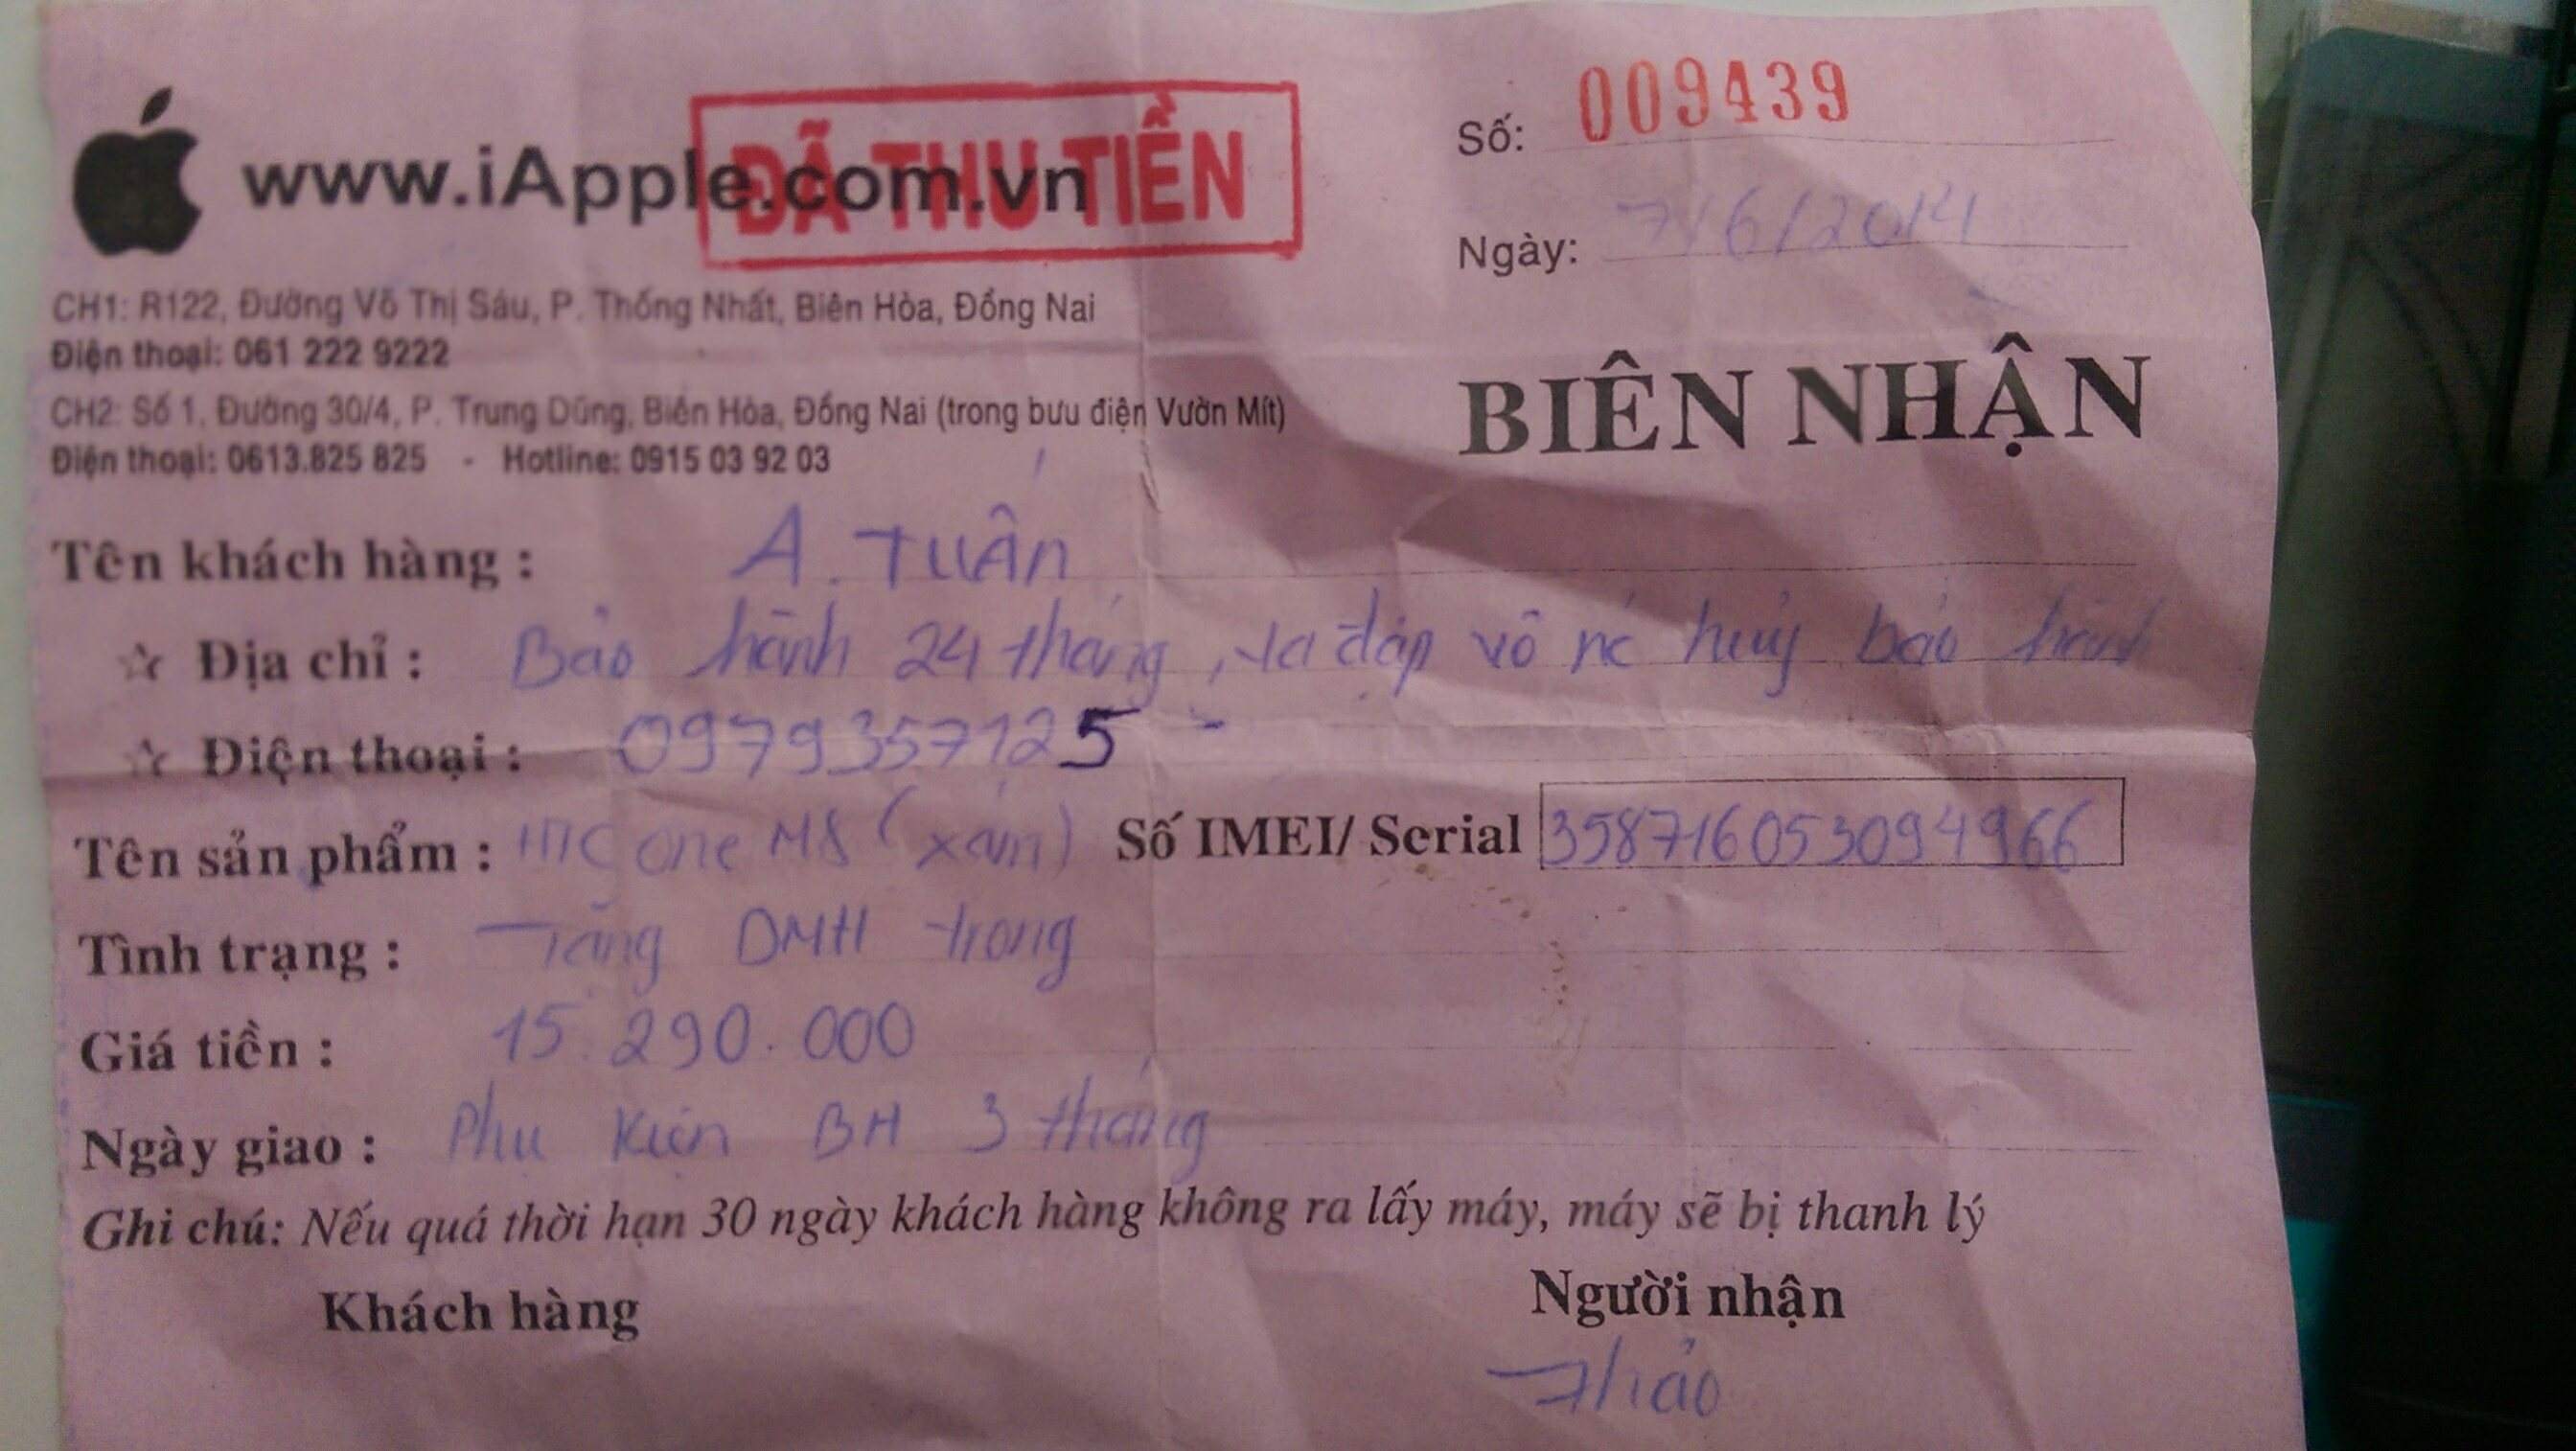 www.iApple.com.vn
ĐÃ THU TIỀN
Số: 009439
Ngày: 7/6/2014
CH1: R122, Đường Võ Thị Sáu, P. Thống Nhất, Biên Hòa, Đồng Nai
Điện thoại: 061 222 9222
CH2: Số 1, Đường 30/4, P. Trung Dũng, Biên Hòa, Đồng Nai (trong bưu điện Vườn Mít)
Điện thoại: 0613.825 825 - Hotline: 0915 03 92 03
BIÊN NHẬN
Tên khách hàng : A. Tuấn
☆ Địa chỉ : Bảo hành 24 tháng, va đập vô nc hủy bảo hành
☆ Điện thoại : 0979357125
Tên sản phẩm : HTC One M8 (xám) Số IMEI/ Serial 358716053094966
Tình trạng : Tặng DMH trong
Giá tiền : 15.290.000
Ngày giao : Phụ kiện BH 3 tháng
Ghi chú: Nếu quá thời hạn 30 ngày khách hàng không ra lấy máy, máy sẽ bị thanh lý
Khách hàng
Người nhận
Thảo